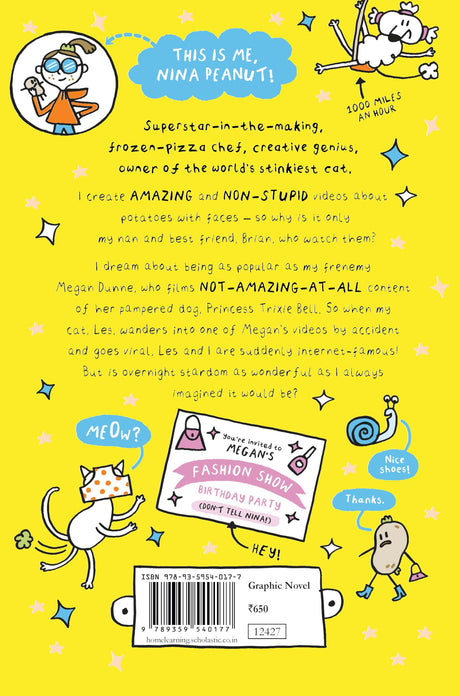 THIS IS ME,
NINA PEANUT!
1000 MILES
AN HOUR
Superstar-in-the-making,
frozen-pizza chef, creative genius,
owner of the world's stinkiest cat.
I create AMAZING and NON-STUPID videos about
potatoes with faces – so why is it only
my nan and best friend, Brian, who watch them?
I dream about being as popular as my frenemy
Megan Dunne, who films NOT-AMAZING-AT-ALL content
of her pampered dog, Princess Trixie Bell. So when my
cat, Les, wanders into one of Megan's videos by accident
and goes viral, Les and I are suddenly internet-famous!
But is overnight stardom as wonderful as I always
imagined it would be?
MEOW?
You're invited to
MEGAN'S
FASHION SHOW
BIRTHDAY PARTY
(DON'T TELL NINA!)
HEY!
Nice
shoes!
Thanks.
ISBN 978-93-5954-017-7
9 789359 540177
homelearning.scholastic.co.in
Graphic Novel
₹650
12427